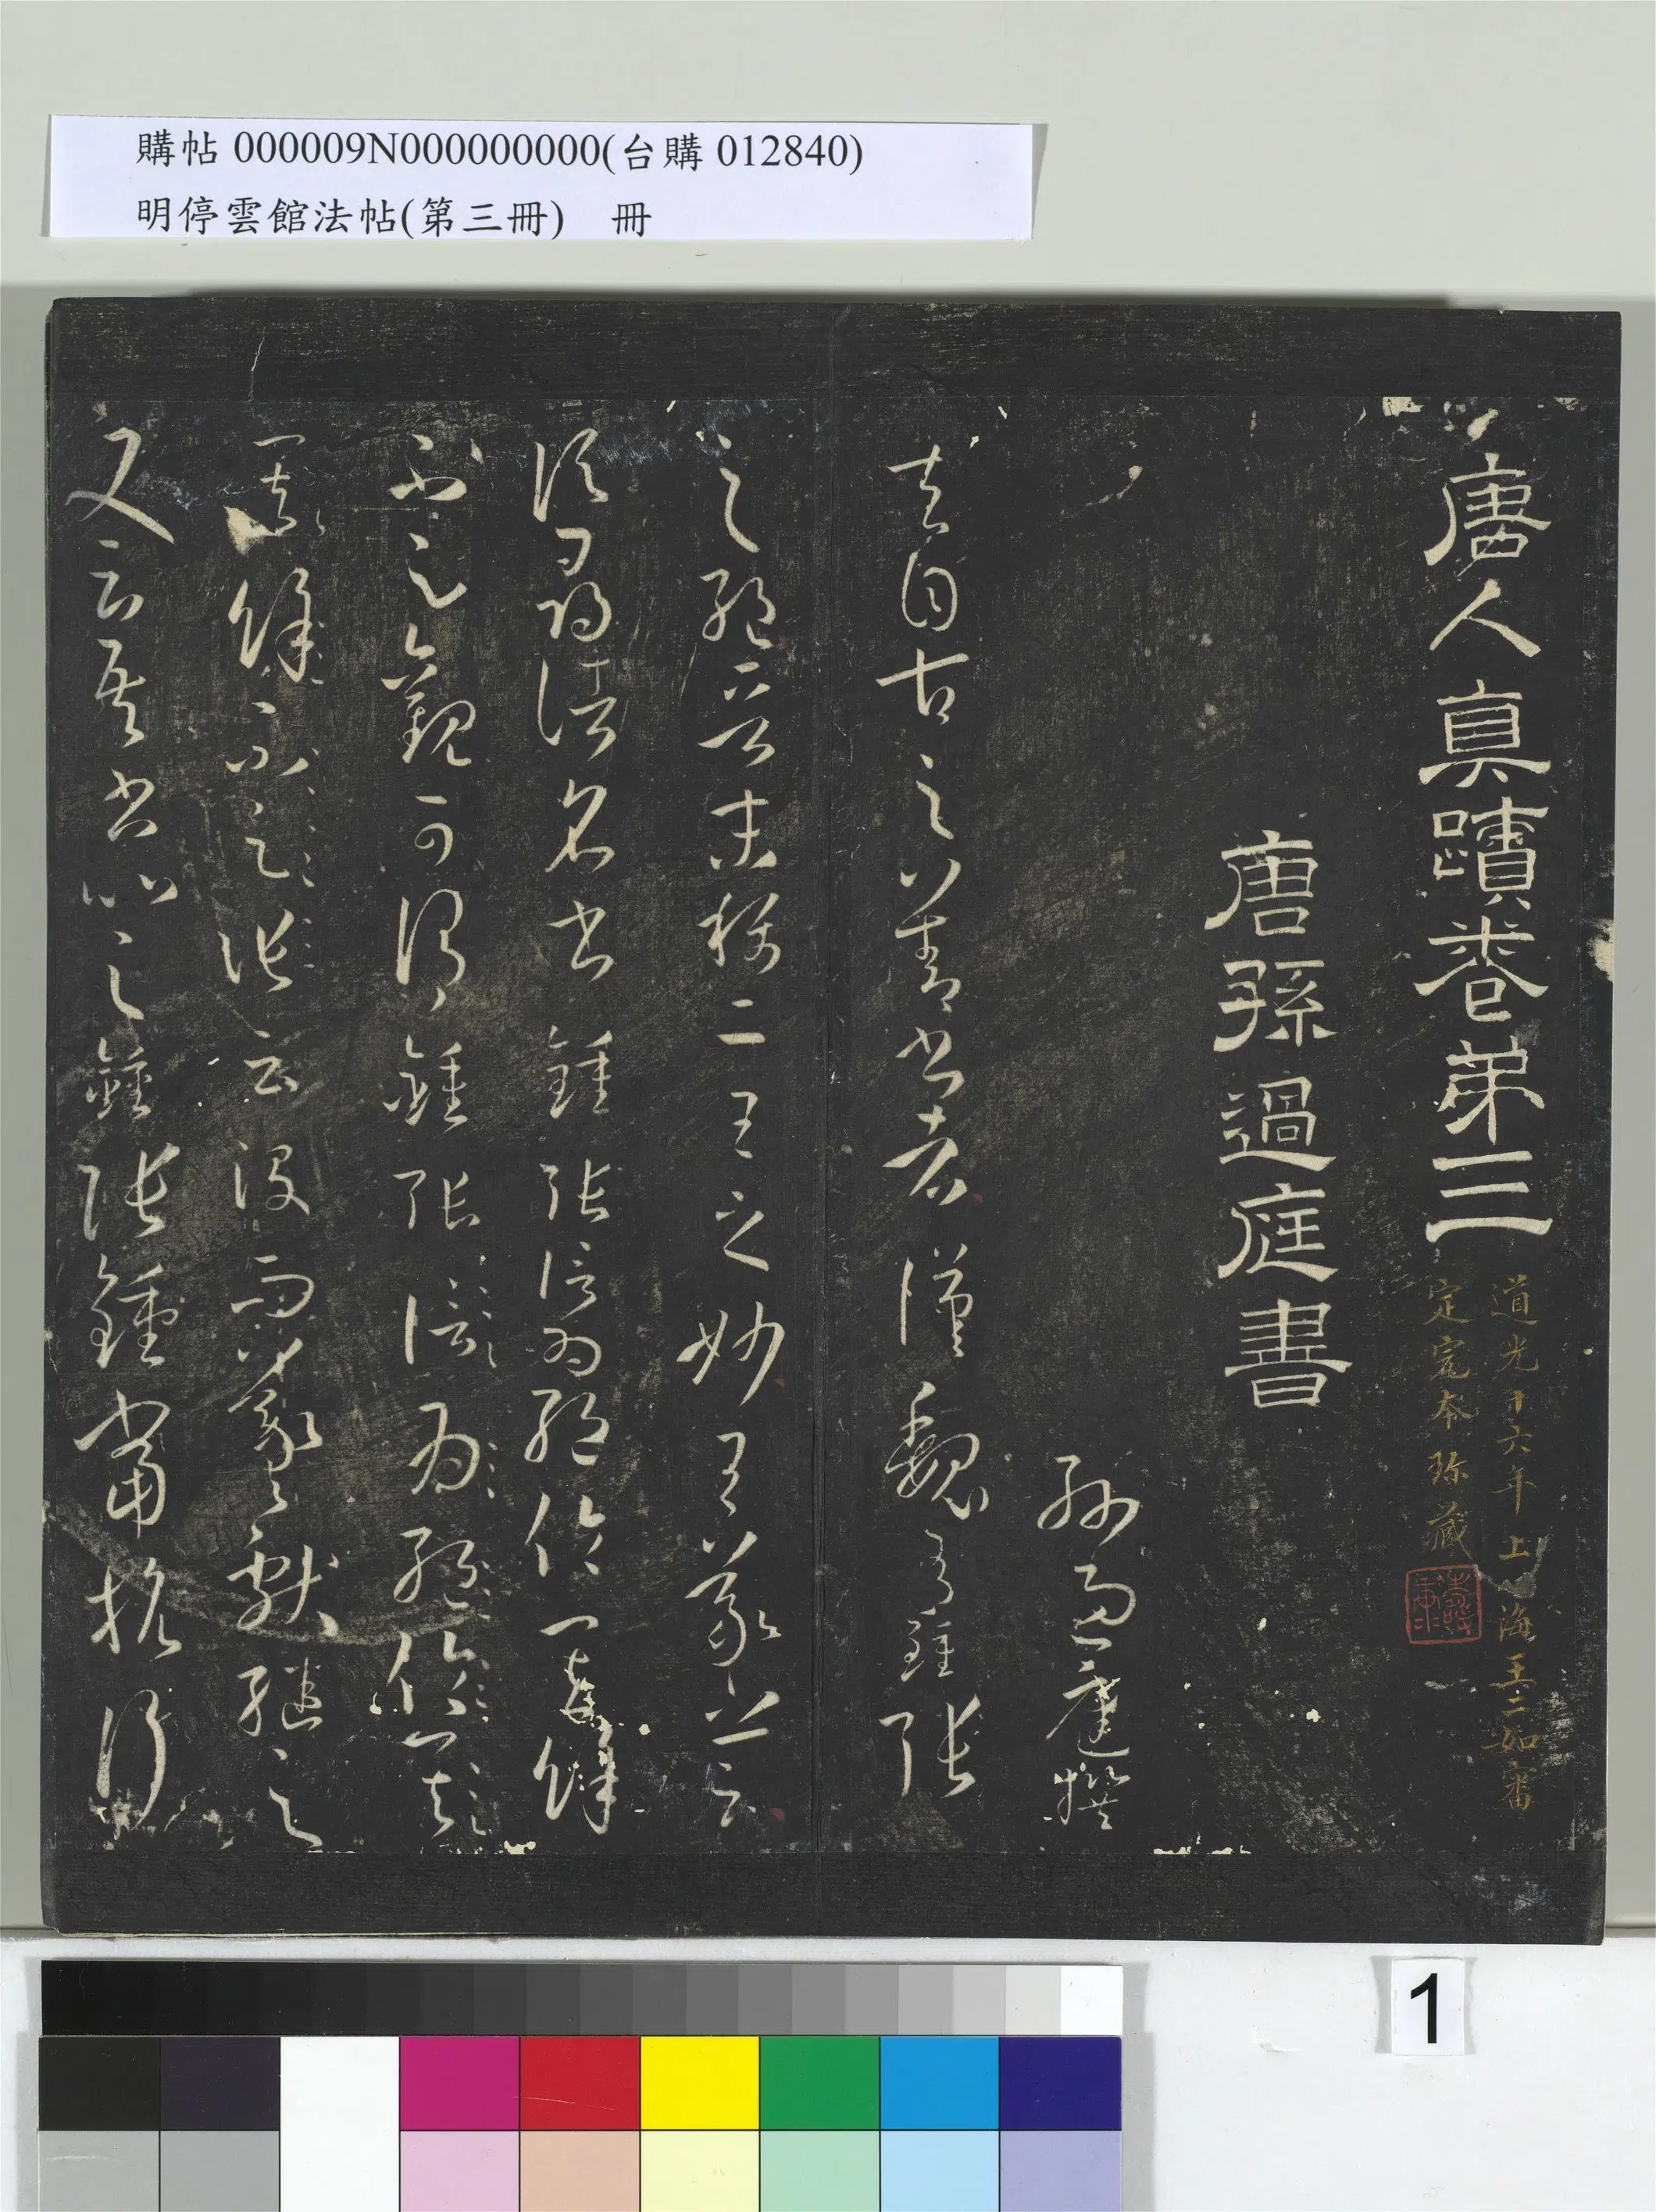 購帖 000009N000000000(台購 012840)
明停雲館法帖(第三冊) 冊
唐人真蹟卷第三
道光十六年上海王二如審
定完本珍藏
唐孫過庭書
孫過庭撰
夫自古之善書者漢魏有鍾張
之絕晉末稱二王之妙王羲之云
頃尋諸名書鍾張信為絕倫其餘
不足觀可謂鍾張信為絕倫其
其餘不足張云沒而羲獻繼之
又云吾書比之鍾張鍾當抗行
1